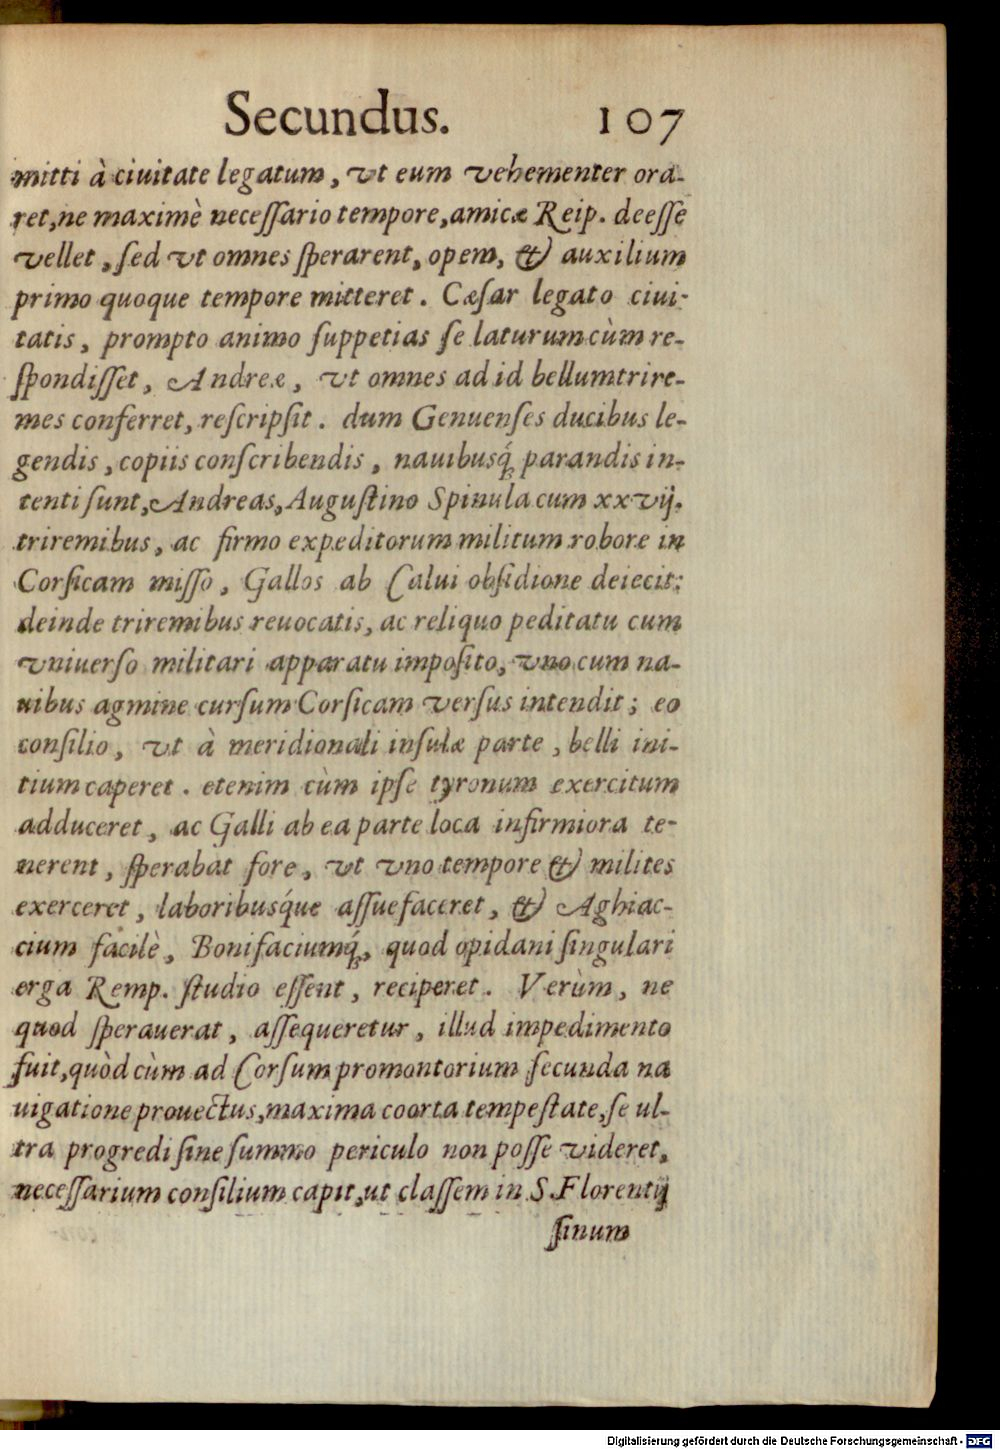 Secundus. 107
mitti à ciuitate legatum, vt eum vehementer ora-
ret, ne maximè necessario tempore, amicæ Reip. deesse
vellet, sed vt omnes sperarent, opem, & auxilium
primo quoque tempore mitteret. Cæsar legato ciui-
tatis, prompto animo suppetias se laturum cùm re-
spondisset, Andreæ, vt omnes ad id bellum trire-
mes conferret, rescripsit. dum Genuenses ducibus le-
gendis, copiis conscribendis, nauibusq́; parandis in-
tenti sunt, Andreas, Augustino Spinula cum xxvij.
triremibus, ac firmo expeditorum militum robore in
Corsicam misso, Gallos ab Calui obsidione deiecit;
deinde triremibus reuocatis, ac reliquo peditatu cum
vniuerso militari apparatu imposito, vno cum na-
uibus agmine cursum Corsicam versus intendit; eo
consilio, vt à meridionali insulæ parte, belli ini-
tium caperet. etenim cùm ipse tyronum exercitum
adduceret, ac Galli ab ea parte loca infirmiora te-
nerent, sperabat fore, vt vno tempore & milites
exerceret, laboribusq́ue assuefaceret, & Aghiac-
cium facilè, Bonifaciumq́;, quod opidani singulari
erga Remp. studio essent, reciperet. Verùm, ne
quod sperauerat, assequeretur, illud impedimento
fuit, quòd cùm ad Corsum promontorium secunda na
uigatione prouectus, maxima coorta tempestate, se ul-
tra progredi sine summo periculo non posse videret,
necessarium consilium capit, ut classem in S. Florentij
sinum
Digitalisierung gefördert durch die Deutsche Forschungsgemeinschaft - DFG